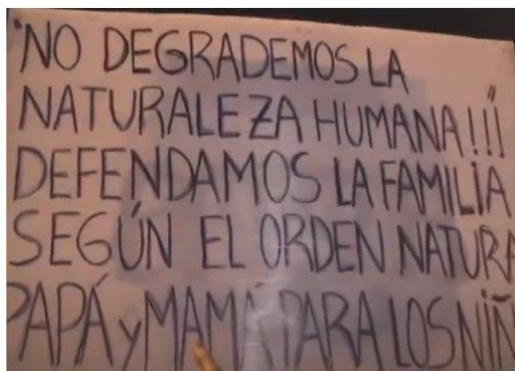 "NO DEGRADEMOS LA
NATURALEZA HUMANA!!¡
DEFENDAMOS LA FAMILIA
SEGÚN EL ORDEN NATURA
PAPÁ y MAMÁ PARA LOS NIÑ